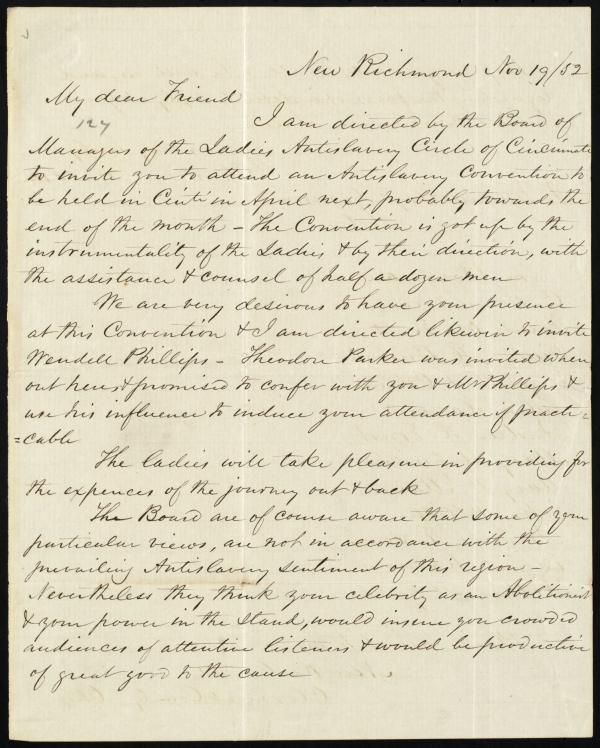 New Richmond Nov 19/52
My dear Friend
127
I am directed by the Board of
Managers of the Ladies Antislavery Circle of Cincinnati
to invite you to attend an Antislavery Convention to
be held in Cinti in April next, probably towards the
end of the month – The Convention is got up by the
instrumentality of the Ladies & by their direction, with
the assistance & counsel of half a dozen men
We are very desirous to have your presence
at this Convention & I am directed likewise to invite
Wendell Phillips – Theodore Parker was invited when
out here & promised to confer with you & Mr Phillips &
use his influence to induce your attendance if practi=
=cable
The ladies will take pleasure in providing for
the expences of the journey out & back
The Board are of course aware that some of your
particular views, are not in accordance with the
prevailing Antislavery sentiment of this region –
Nevertheless they think your celebrity as an Abolitionist
& your power in the stand, would insure you crowded
audiences of attentive listeners & would be productive
of great good to the cause